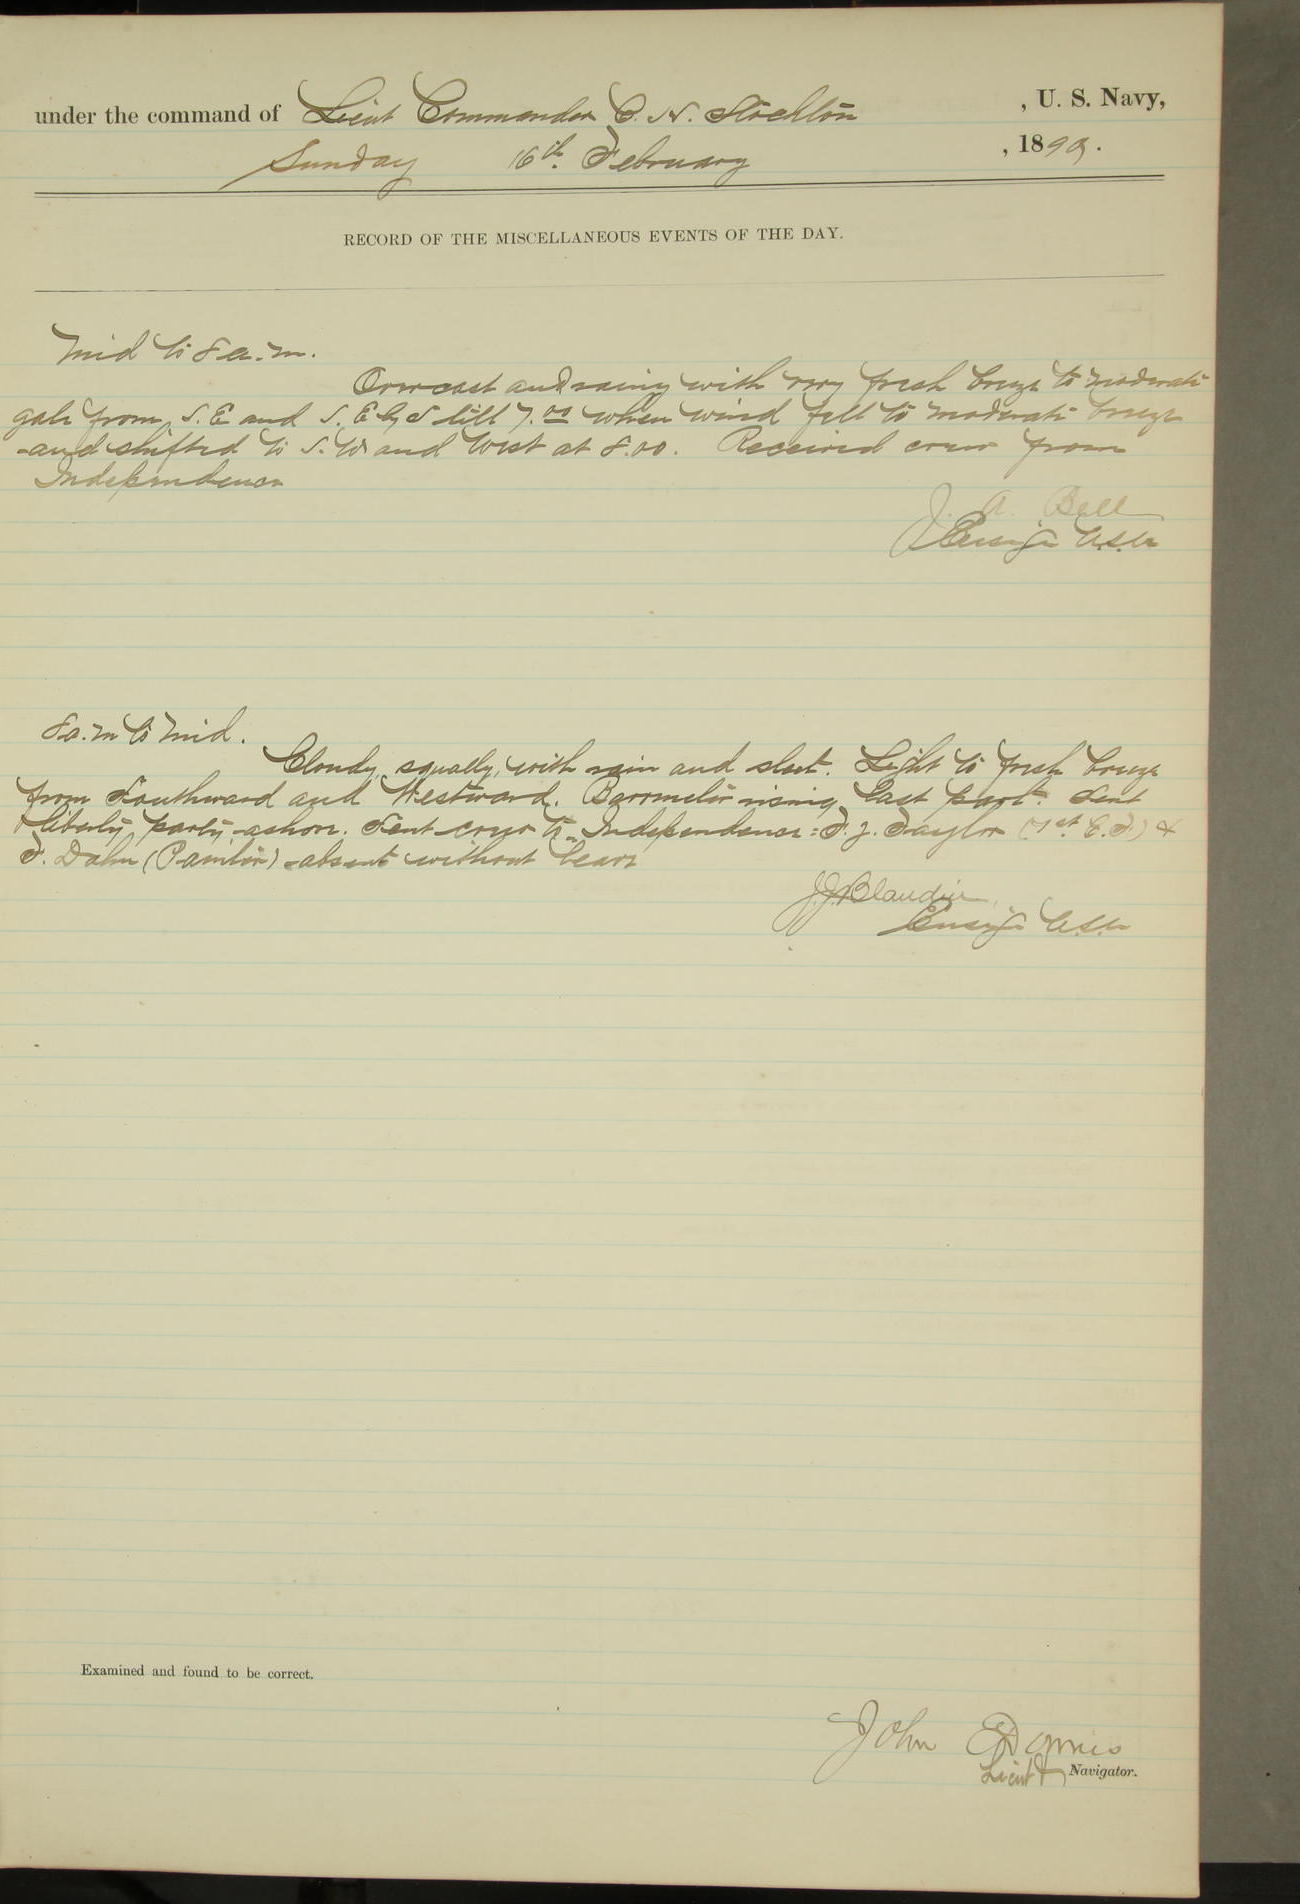 under the command of Lieut Commander C. H. Stockton, U. S. Navy,
Sunday 16th. February, 1890.
RECORD OF THE MISCELLANEOUS EVENTS OF THE DAY.
Mid to 8 a.m.
Overcast and rainy with very fresh breeze to moderate
gale from S. E and S. E by S till 7.00 when wind fell to moderate breeze
and shifted to S. W and West at 8.00. Received crew from
Independence
J. A. Bell
Ensign USN
8 a.m to Mid.
Cloudy, squally, with rain and sleet. Light to fresh breeze
from Southward and Westward. Barometer rising last part. Sent
liberty party ashore. Sent crew to Independence: F. J. Taylor (1st C. F.) &
F. Dahn (Painter) absent without leave
J. J. Blandin
Ensign USN
Examined and found to be correct.
John
Lieut Navigator.